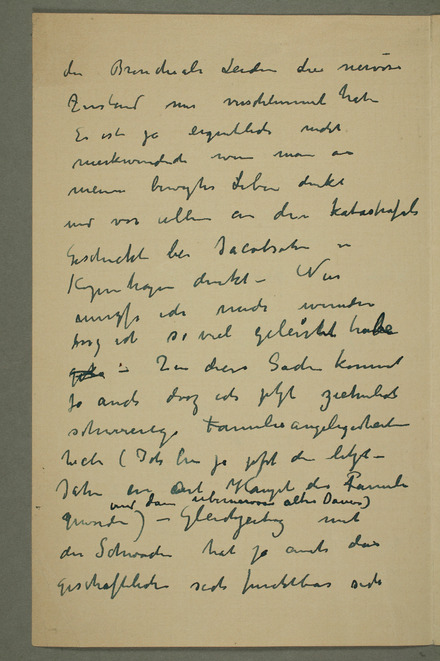 der Bronchiale Leiden den nervösen
Zustand nur verschlimmert haben
Es ist ja eigentlich nicht
merkwürdig wenn man an
mein bewegtes Leben denkt
und vor allem an die katastrofale
Geschichte bei Jacobsohn in
Kopenhagen denkt – Nur
muss ich mich wundern
dass ich so viel geleistet habe
– Zu diesen Sachen kommt
ja auch dass ich jetzt ziemlich
schwierige Familieangelegenheiten
habe (Ich bin ja jetzt die letzten
Jahre ein Art Haupt der Familie
und dann nervösen alten Damen)
geworden) – Gleichzeitig mit
den Schwaden hat ja auch das
geschäftliche sich furchtbar